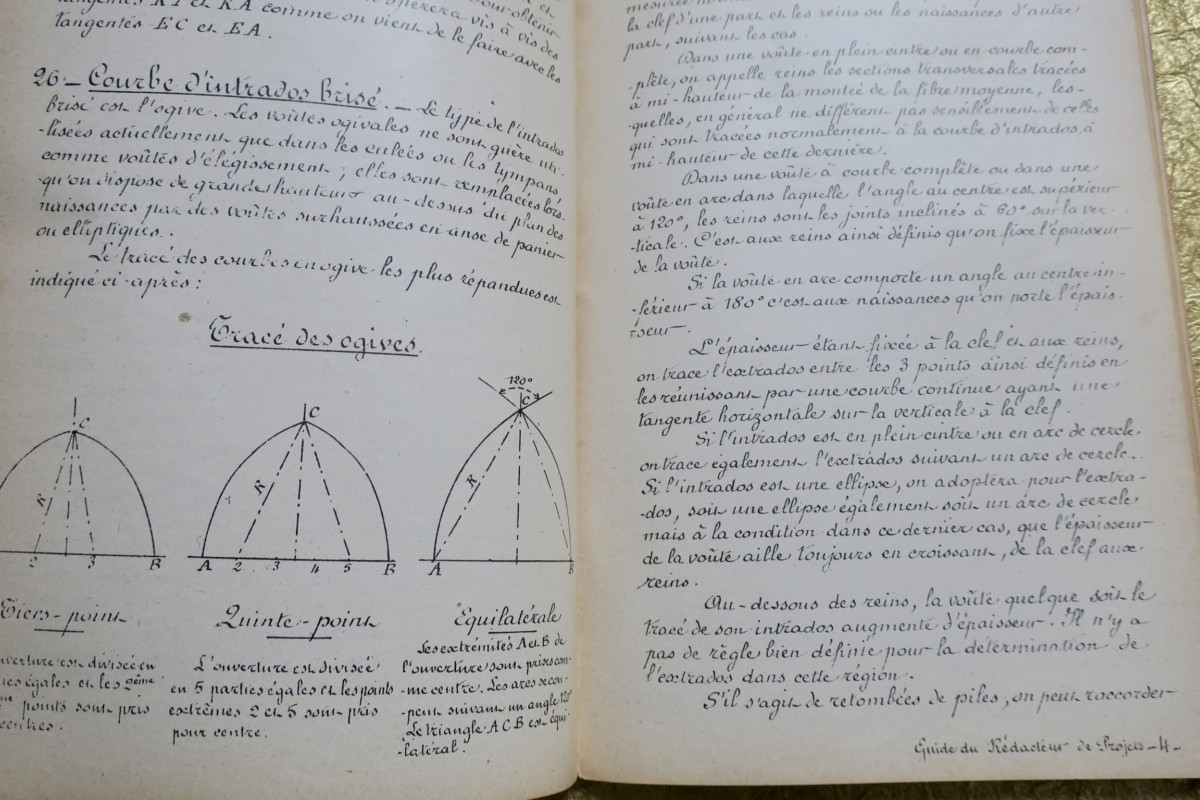 tangentes KI et KA comme on vient de le faire avec les
tangentes EC et EA.
26 - Courbe d'intrados brisé. - Le type de l'intrados
brisé est l'ogive. Les voûtes ogivales ne sont guère uti-
-lisées actuellement que dans les culées ou les tympans
comme voûtes d'élégissement ; elles sont remplacées lors-
-qu'on dispose de grandes hauteurs au-dessus du plan des
naissances par des voûtes surhaussées en anse de panier
ou elliptiques.
Le tracé des courbes en ogive les plus répandues est
indiqué ci-après :
Tracé des ogives.
C
R
2
3
B
C
R
A
2
3
4
5
B
120°
C
R
A
B
Tiers-point
verture est divisée en
ies égales et les 2ème
me points sont pris
centres.
Quinte-point
L'ouverture est divisée
en 5 parties égales et les points
extrêmes 2 et 5 sont pris
pour centre.
Equilatérale
Les extrémités A et B de
l'ouverture sont prises com-
-me centre. Les arcs se cou-
-pent suivant un angle 120°
Le triangle ACB est équi-
-latéral.
mesurée
la clef d'une part et les reins ou les naissances d'autre
part, suivant les cas.
Dans une voûte en plein cintre ou en courbe com-
-plète, on appelle reins les sections transversales tracées
à mi-hauteur de la montée de la fibre moyenne, les-
-quelles, en général ne diffèrent pas sensiblement de celles
qui sont tracées normalement à la courbe d'intrados, à
mi-hauteur de cette dernière.
Dans une voûte à courbe complète ou dans une
voûte en arc dans laquelle l'angle au centre est supérieur
à 120°, les reins sont les joints inclinés à 60° sur la ver-
-ticale. C'est aux reins ainsi définis qu'on fixe l'épaisseur
de la voûte.
Si la voûte en arc comporte un angle au centre in-
-férieur à 180° c'est aux naissances qu'on porte l'épais-
-seur.
L'épaisseur étant fixée à la clef et aux reins,
on trace l'extrados entre les 3 points ainsi définis en
les réunissant par une courbe continue ayant une
tangente horizontale sur la verticale à la clef.
Si l'intrados est en plein cintre ou en arc de cercle
on trace également l'extrados suivant un arc de cercle.
Si l'intrados est une ellipse, on adoptera pour l'extra-
-dos, soit une ellipse également soit un arc de cercle
mais à la condition dans ce dernier cas, que l'épaisseur
de la voûte aille toujours en croissant, de la clef aux
reins.
Au-dessous des reins, la voûte quelque soit le
tracé de son intrados augmente d'épaisseur. Il n'y a
pas de règle bien définie pour la détermination de
l'extrados dans cette région.
S'il s'agit de retombées de piles, on peut raccorder
Guide du Rédacteur de Projets - 4 -